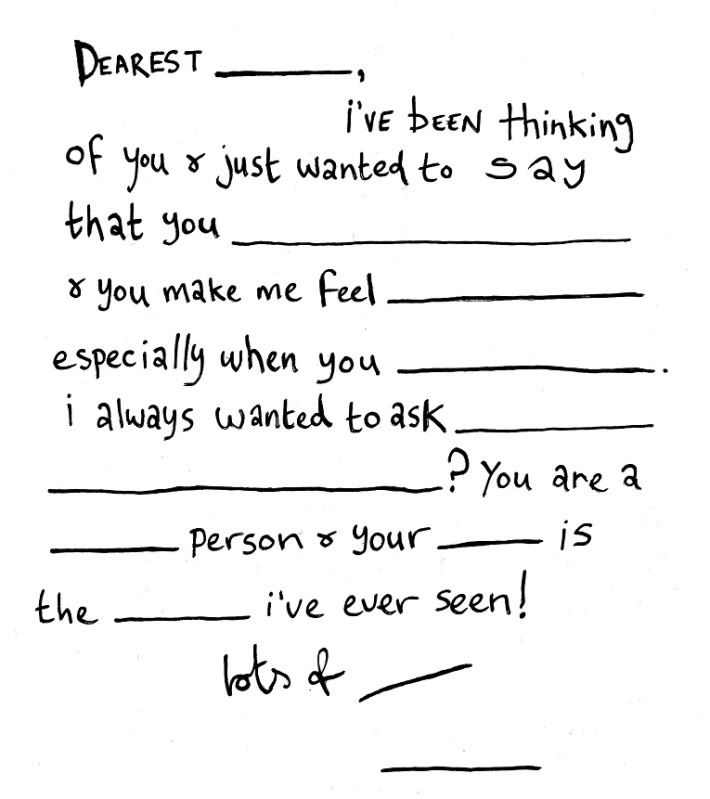 DEAREST ________,
i'VE bEEN thinking
of you & just wanted to say
that you ________________
& you make me feel ________________
especially when you ________________.
i always wanted to ask ____________
________________? You are a
________ person & your ______ is
the ________ i've ever seen!
lots of ______
________